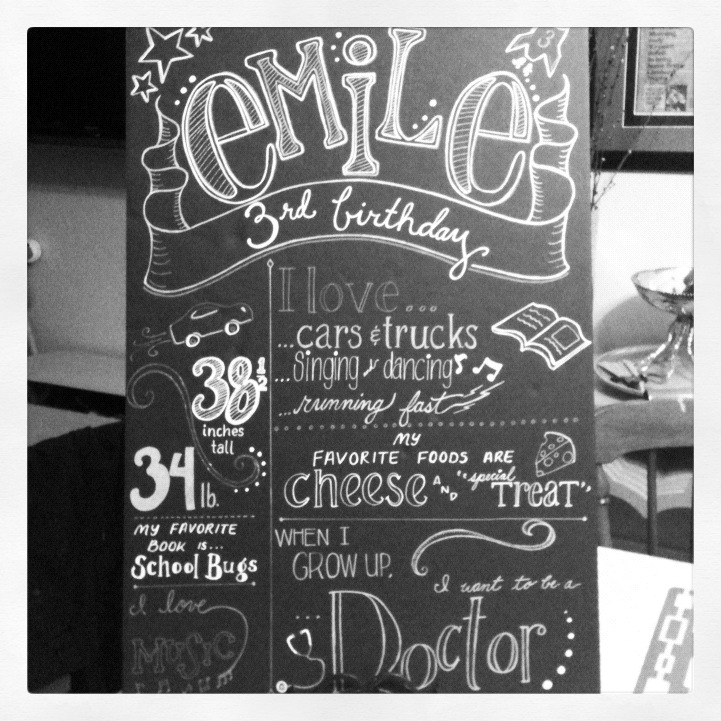 3
EMiLe
3rd birthday
I love...
...cars & trucks
...Singing & dancing
...running fast
38 1/2
inches
tall
34 lb.
MY FAVORITE
BOOK IS...
School Bugs
I love
MUSIC
MY
FAVORITE FOODS ARE
cheese AND "special TREAT"
WHEN I
GROW UP,
I want to be a
Doctor